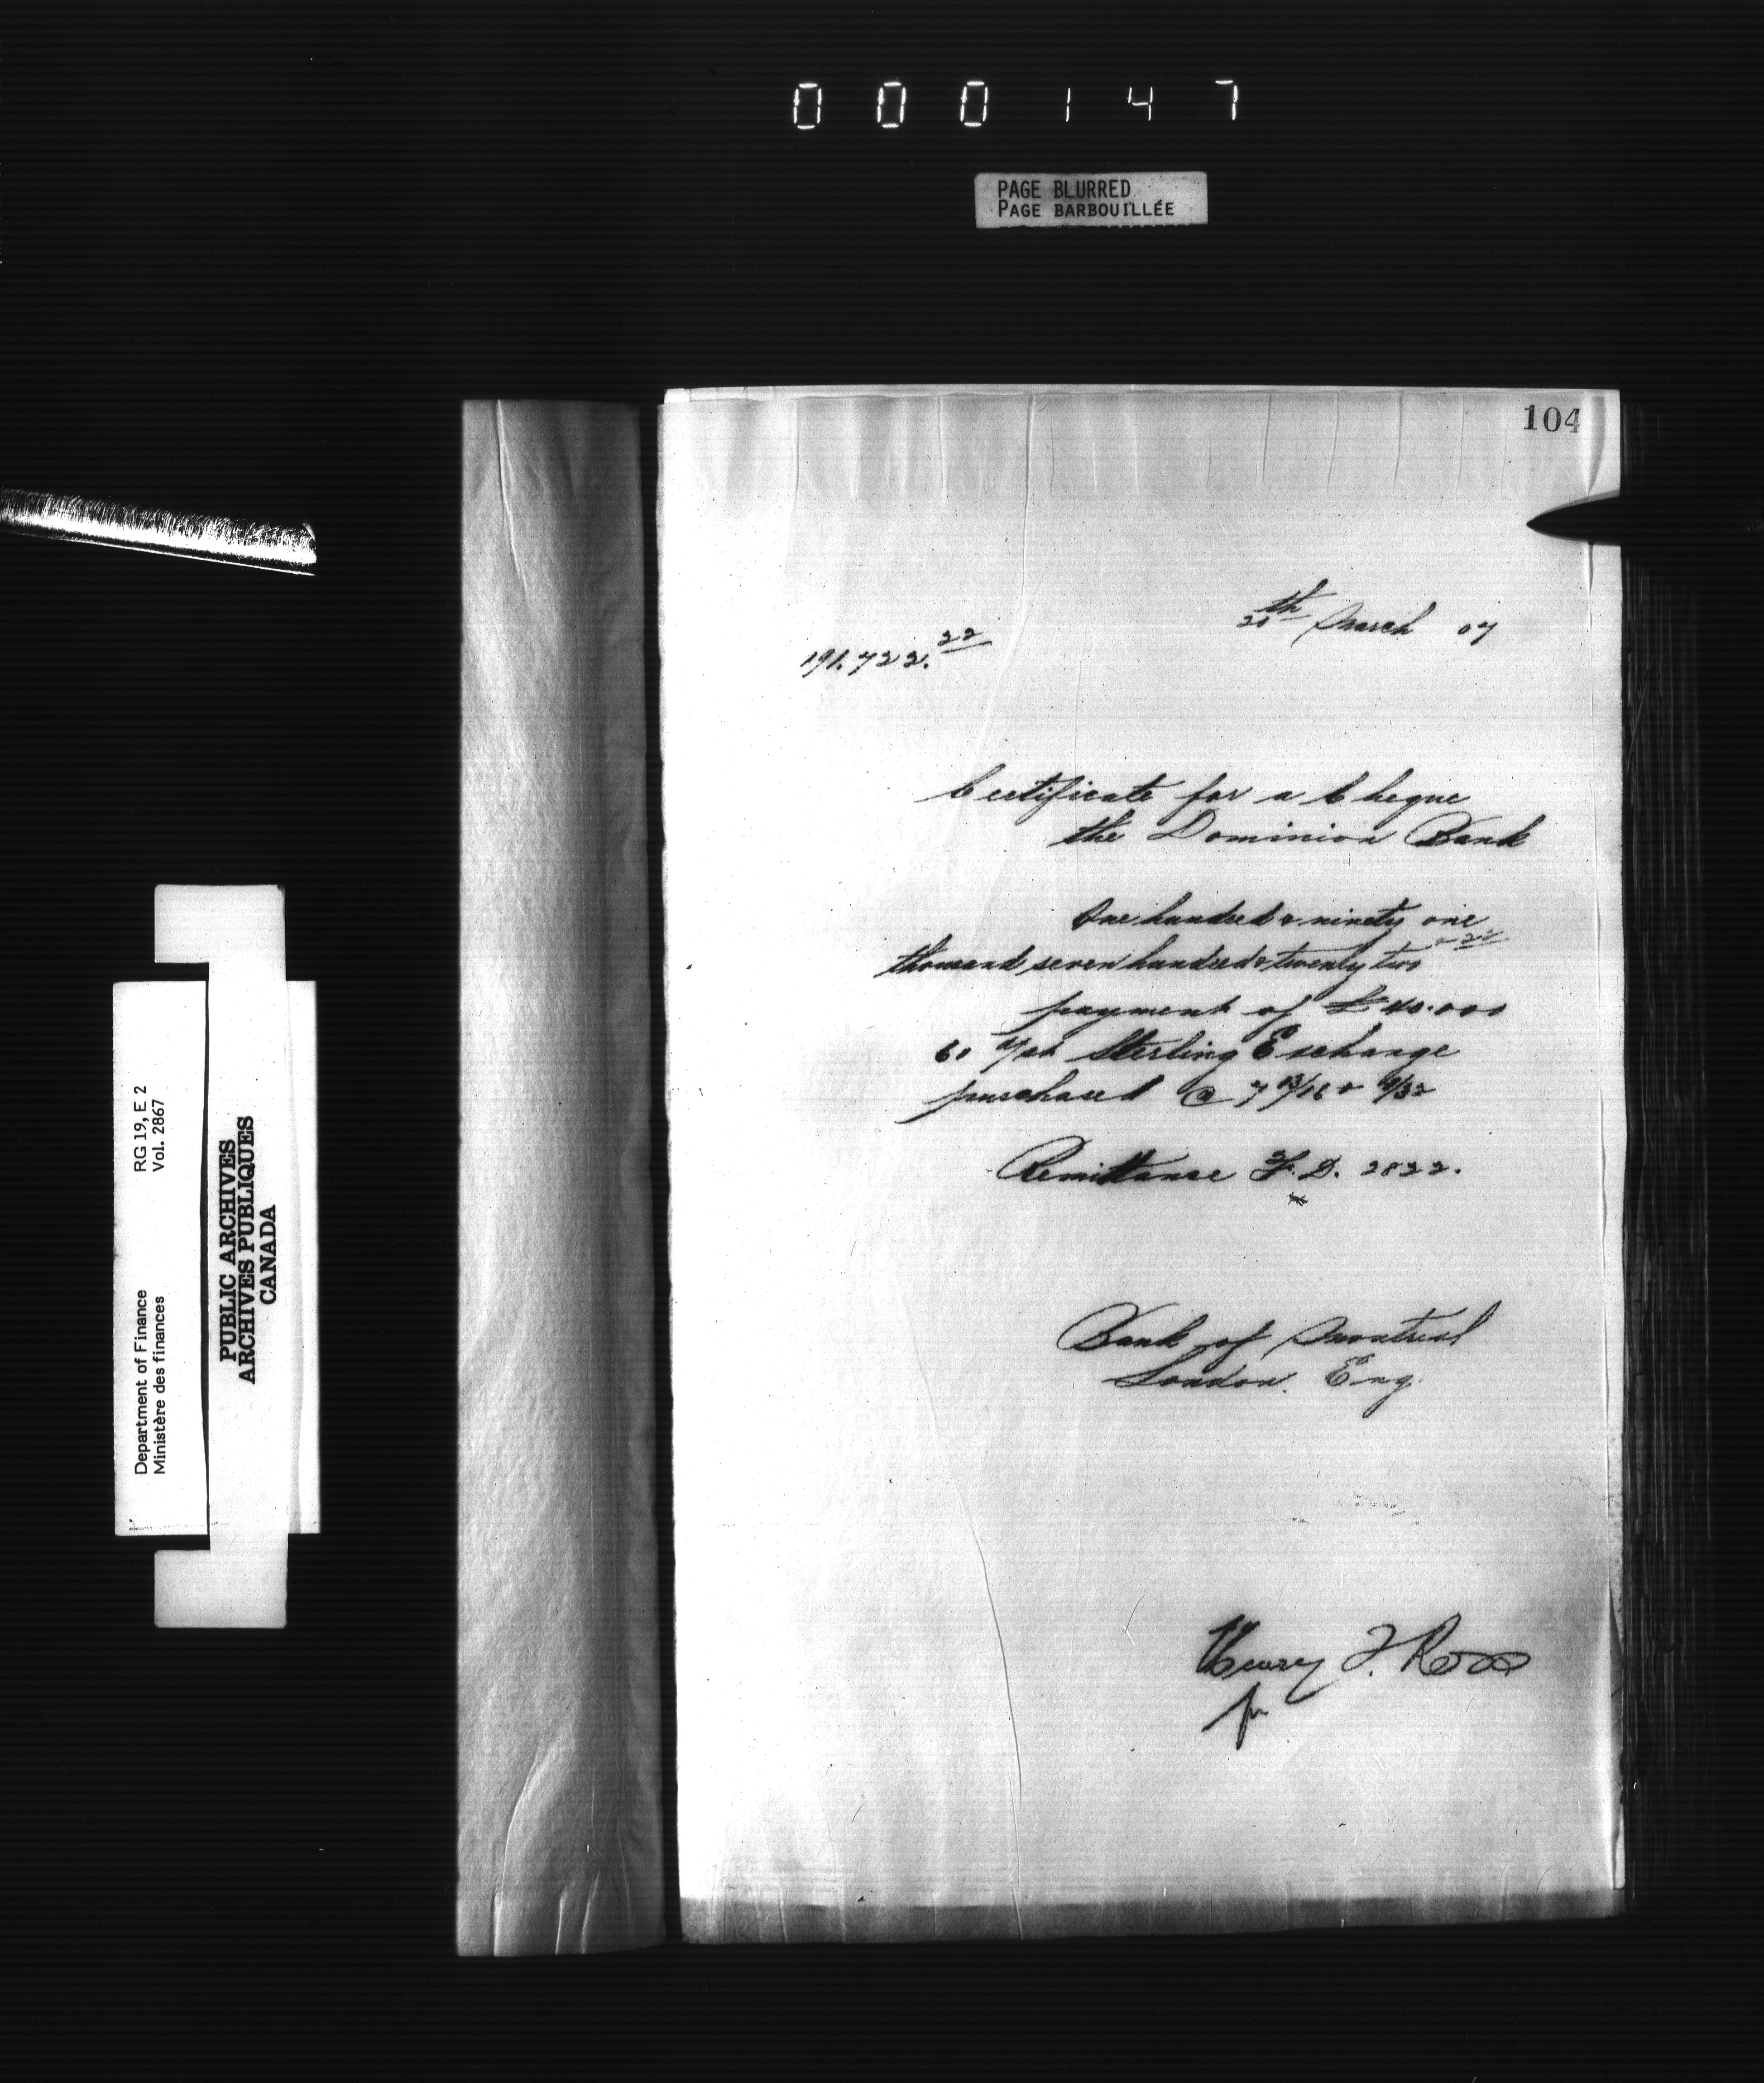 000147
PAGE BLURRED
PAGE BARBOUILLÉE
104
20th March 07
191.722.22
Certificate for a Cheque
the Dominion Bank
One hundred & ninety one
thousand seven hundred & twenty two & 22
payment of £40.000
60 Sterling Exchange
purchased @ 7 13/16 &
Remittance F.D. 2822.
Bank of Montreal
London. Eng.
Henry F. Ross
for
Department of Finance RG 19, E 2
Ministère des finances Vol. 2867
PUBLIC ARCHIVES
ARCHIVES PUBLIQUES
CANADA